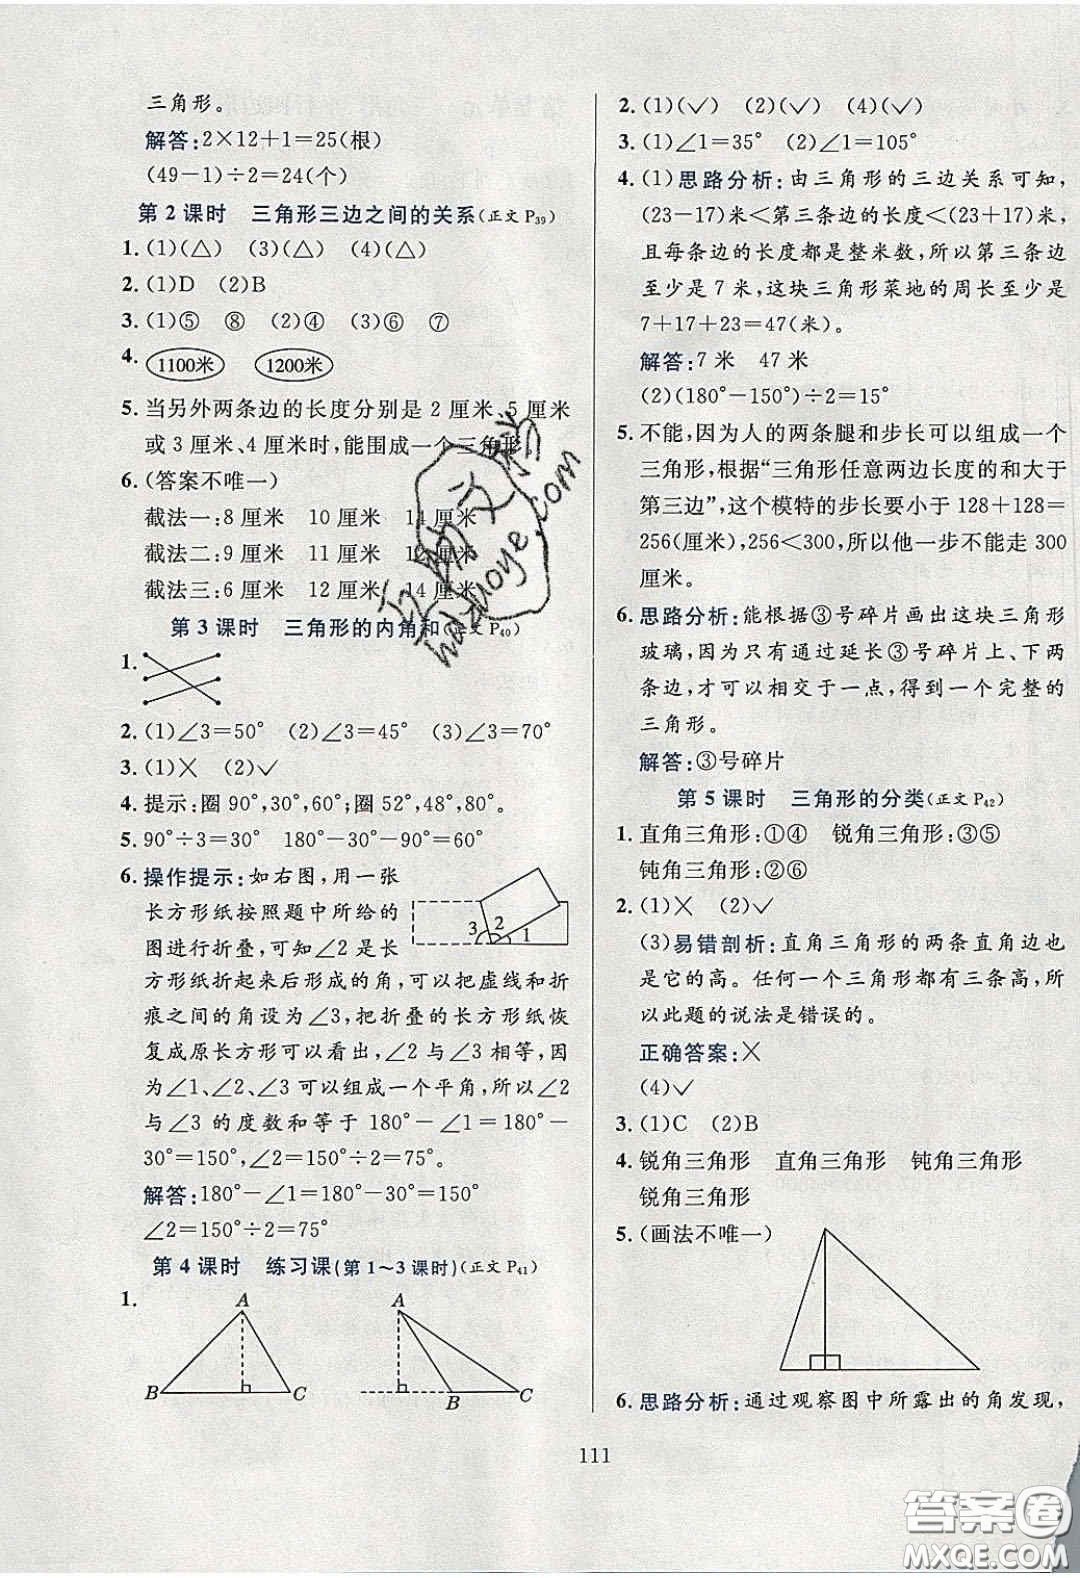 三角形。
解答:2×12+1=25(根)
(49-1)÷2=24(个)
第2课时 三角形三边之间的关系(正文P39)
1. (1)(△) (3)(△) (4)(△)
2. (1)D (2)B
3. (1)⑤ ⑧ (2)④ (3)⑥ ⑦
4. 1100米 1200米
5. 当另外两条边的长度分别是2厘米、5厘米
或3厘米、4厘米时,能围成一个三角形
6. (答案不唯一)
截法一:8厘米 10厘米 14厘米
截法二:9厘米 11厘米 12厘米
截法三:6厘米 12厘米 14厘米
第3课时 三角形的内角和(正文P40)
1.
2. (1)∠3=50° (2)∠3=45° (3)∠3=70°
3. (1)× (2)✓
4. 提示:圈90°,30°,60°;圈52°,48°,80°。
5. 90°÷3=30° 180°-30°-90°=60°
6. 操作提示:如右图,用一张
长方形纸按照题中所给的
图进行折叠,可知∠2是长
方形纸折起来后形成的角,可以把虚线和折
痕之间的角设为∠3,把折叠的长方形纸恢
复成原长方形可以看出,∠2与∠3相等,因
为∠1、∠2、∠3可以组成一个平角,所以∠2
与∠3的度数和等于180°-∠1=180°-
30°=150°,∠2=150°÷2=75°。
解答:180°-∠1=180°-30°=150°
∠2=150°÷2=75°
3 2 1
第4课时 练习课(第1~3课时)(正文P41)
1.
A A
B C B C
2. (1)(✓) (2)(✓) (4)(✓)
3. (1)∠1=35° (2)∠1=75°
4. (1)思路分析:由三角形的三边关系可知,
(23-17)米<第三条边的长度<(23+17)米,
且每条边的长度都是整米数,所以第三条边
至少是7米,这块三角形菜地的周长至少是
7+17+23=47(米)。
解答:7米 47米
(2)(180°-150°)÷2=15°
5. 不能,因为人的两条腿和步长可以组成一个
三角形,根据“三角形任意两边长度的和大于
第三边”,这个模特的步长要小于128+128=
256(厘米),256<300,所以他一步不能走300
厘米。
6. 思路分析:能根据③号碎片画出这块三角形
玻璃,因为只有通过延长③号碎片上、下两
条边,才可以相交于一点,得到一个完整的
三角形。
解答:③号碎片
第5课时 三角形的分类(正文P42)
1. 直角三角形:①④ 锐角三角形:③⑤
钝角三角形:②⑥
2. (1)× (2)✓
(3)易错剖析:直角三角形的两条直角边也
是它的高。任何一个三角形都有三条高,所
以此题的说法是错误的。
正确答案:×
(4)✓
3. (1)C (2)B
4. 锐角三角形 直角三角形 钝角三角形
锐角三角形
5. (画法不唯一)
6. 思路分析:通过观察图中所露出的角发现,
111
hdzuoye.com
答案圈
MXQE.COM